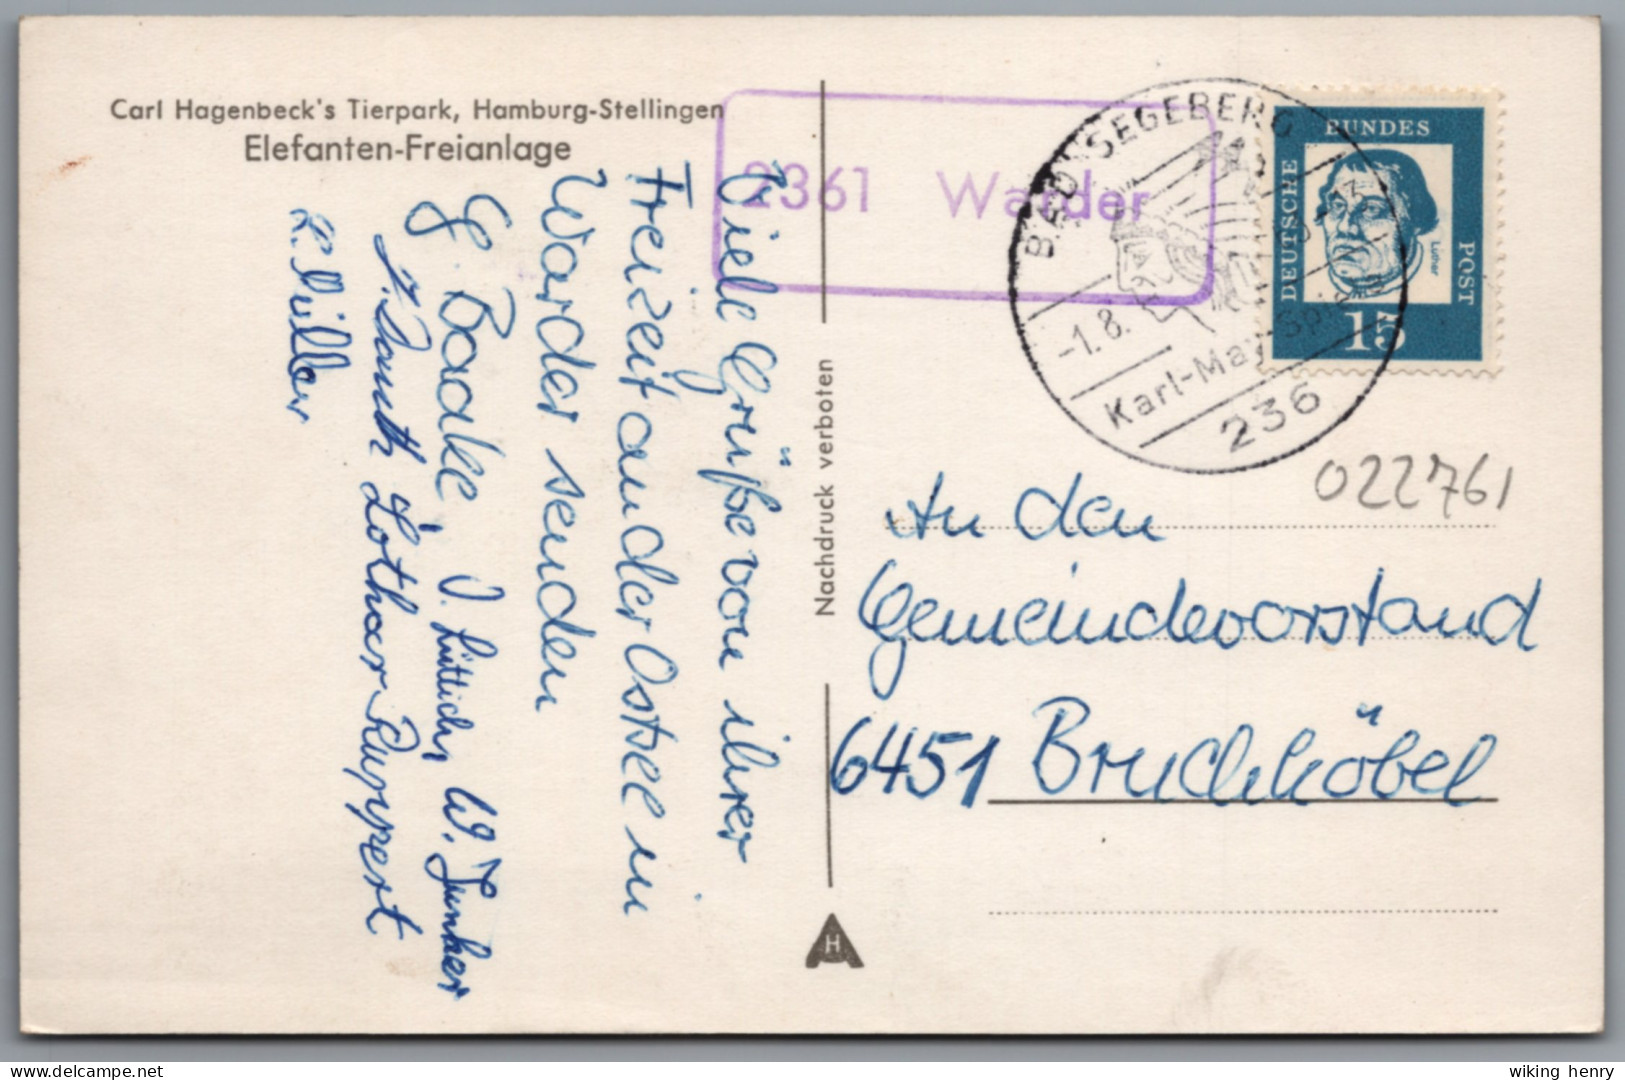 Carl Hagenbeck's Tierpark, Hamburg-Stellingen
Elefanten-Freianlage
Viele Grüße von ihrer
Freizeit an der Ostsee in
Warder senden
G. Baake J. Lüttich W. Junker
Lothar Ruppert
Nachdruck verboten
H
2361 Warder
BAD SEGEBERG
-1.8.
Karl-May-Spiele
236
DEUTSCHE
BUNDES
POST
Luther
15
022761
An den
Gemeindevorstand
6451 Bruchköbel
wiking henry